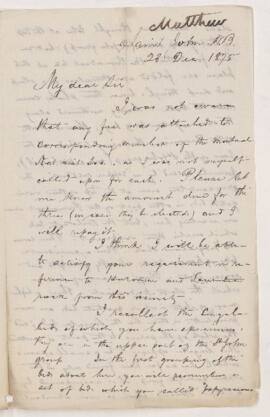 Matthew
Saint John N.B.
28 Dec 1875
My dear Sir
I was not aware
that any fee was attached to
corresponding members of the Natural
Hist. Soc. as I was not myself
called upon for such. Please let
me know the amount due for the
three (in case they be elected) and I
will repay it.
I think I will be able
to satisfy your requirements in re-
ference to Huronian and Laurentian
from this vicinity
I recollect the
beds of which you have specimens,
they are in the upper part of the St John
group. In the first grouping of the
beds about here you will remember a
set of beds which you called Papyraceous